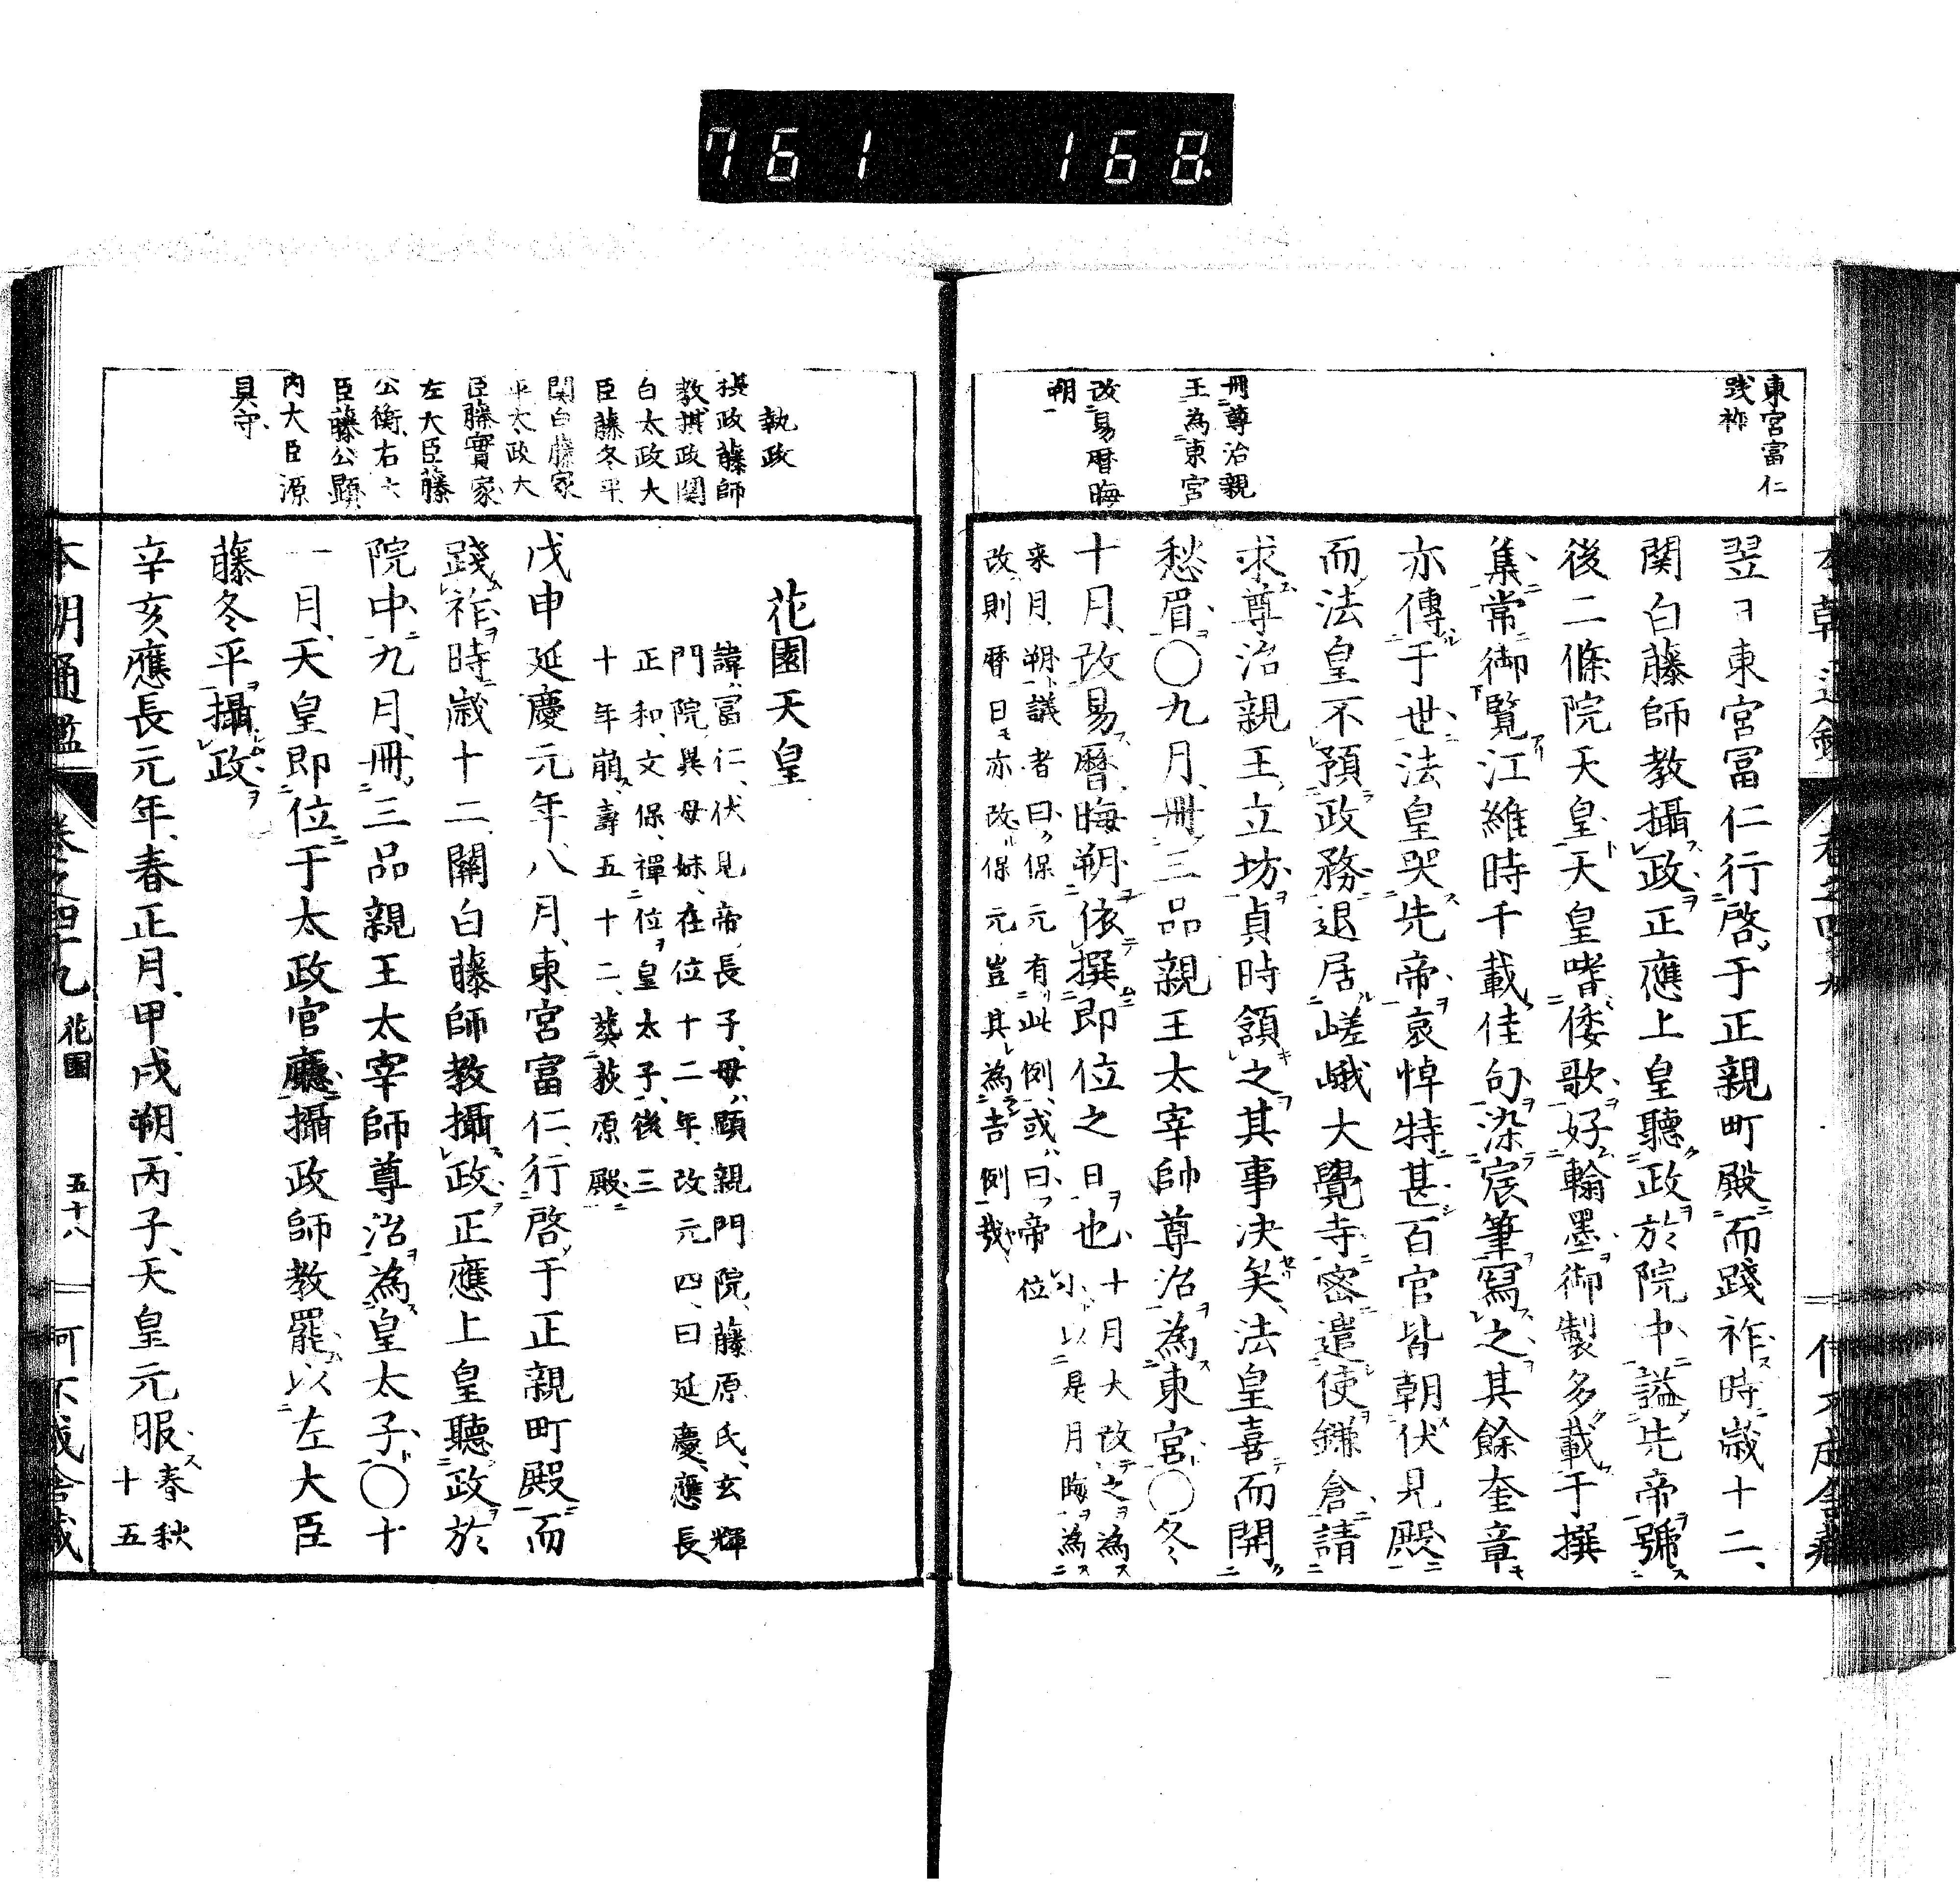 761 168.
東宮富仁
践祚
冊尊治親
王為東宮
改易暦晦
朔
翌日東宮冨仁行啓于正親町殿而踐祚時歳十二、
関白藤師教攝政正應上皇聽政於院中謚先帝號
後二條院天皇天皇嗜倭歌好翰墨御製多載于撰
集常御覽江維時千載佳句染宸筆寫之其餘奎章
亦傳于世法皇哭先帝哀悼特甚百官皆朝伏見殿
而法皇不預政務退居嵯峨大覺寺密遣使鎌倉請
求尊治親王立坊貞時領之其事决矣法皇喜而開
愁眉〇九月冊三品親王太宰帥尊治為東宮〇冬
十月改易曆晦朔依撰即位之日也十月大改之為
小以是月晦為
来月朔議者曰保元有此例或曰帝位
改則暦日亦改保元豈其為吉例哉
執政
摂政藤師
教摂政関
白太政大
臣藤冬平
関白藤家
平太政大
臣藤實家
左大臣藤
公衡右大
臣藤公顕
内大臣源
具守
花園天皇
諱富仁伏見帝長子母顕親門院藤原氏玄輝
門院異母妹在位十二年改元四曰延慶應長
正和文保禪位皇太子後三
十年崩壽五十二葬萩原殿
戊申延慶元年八月東宮富仁行啓于正親町殿而
踐祚時歳十二關白藤師教攝政正應上皇聽政於
院中九月冊三品親王太宰師尊治為皇太子〇十
一月天皇即位于太政官廳攝政師教罷以左大臣
藤冬平攝政
辛亥應長元年春正月甲戌朔丙子天皇元服春秋
十五
本朝通鑑 卷之四十九 花園 五十八